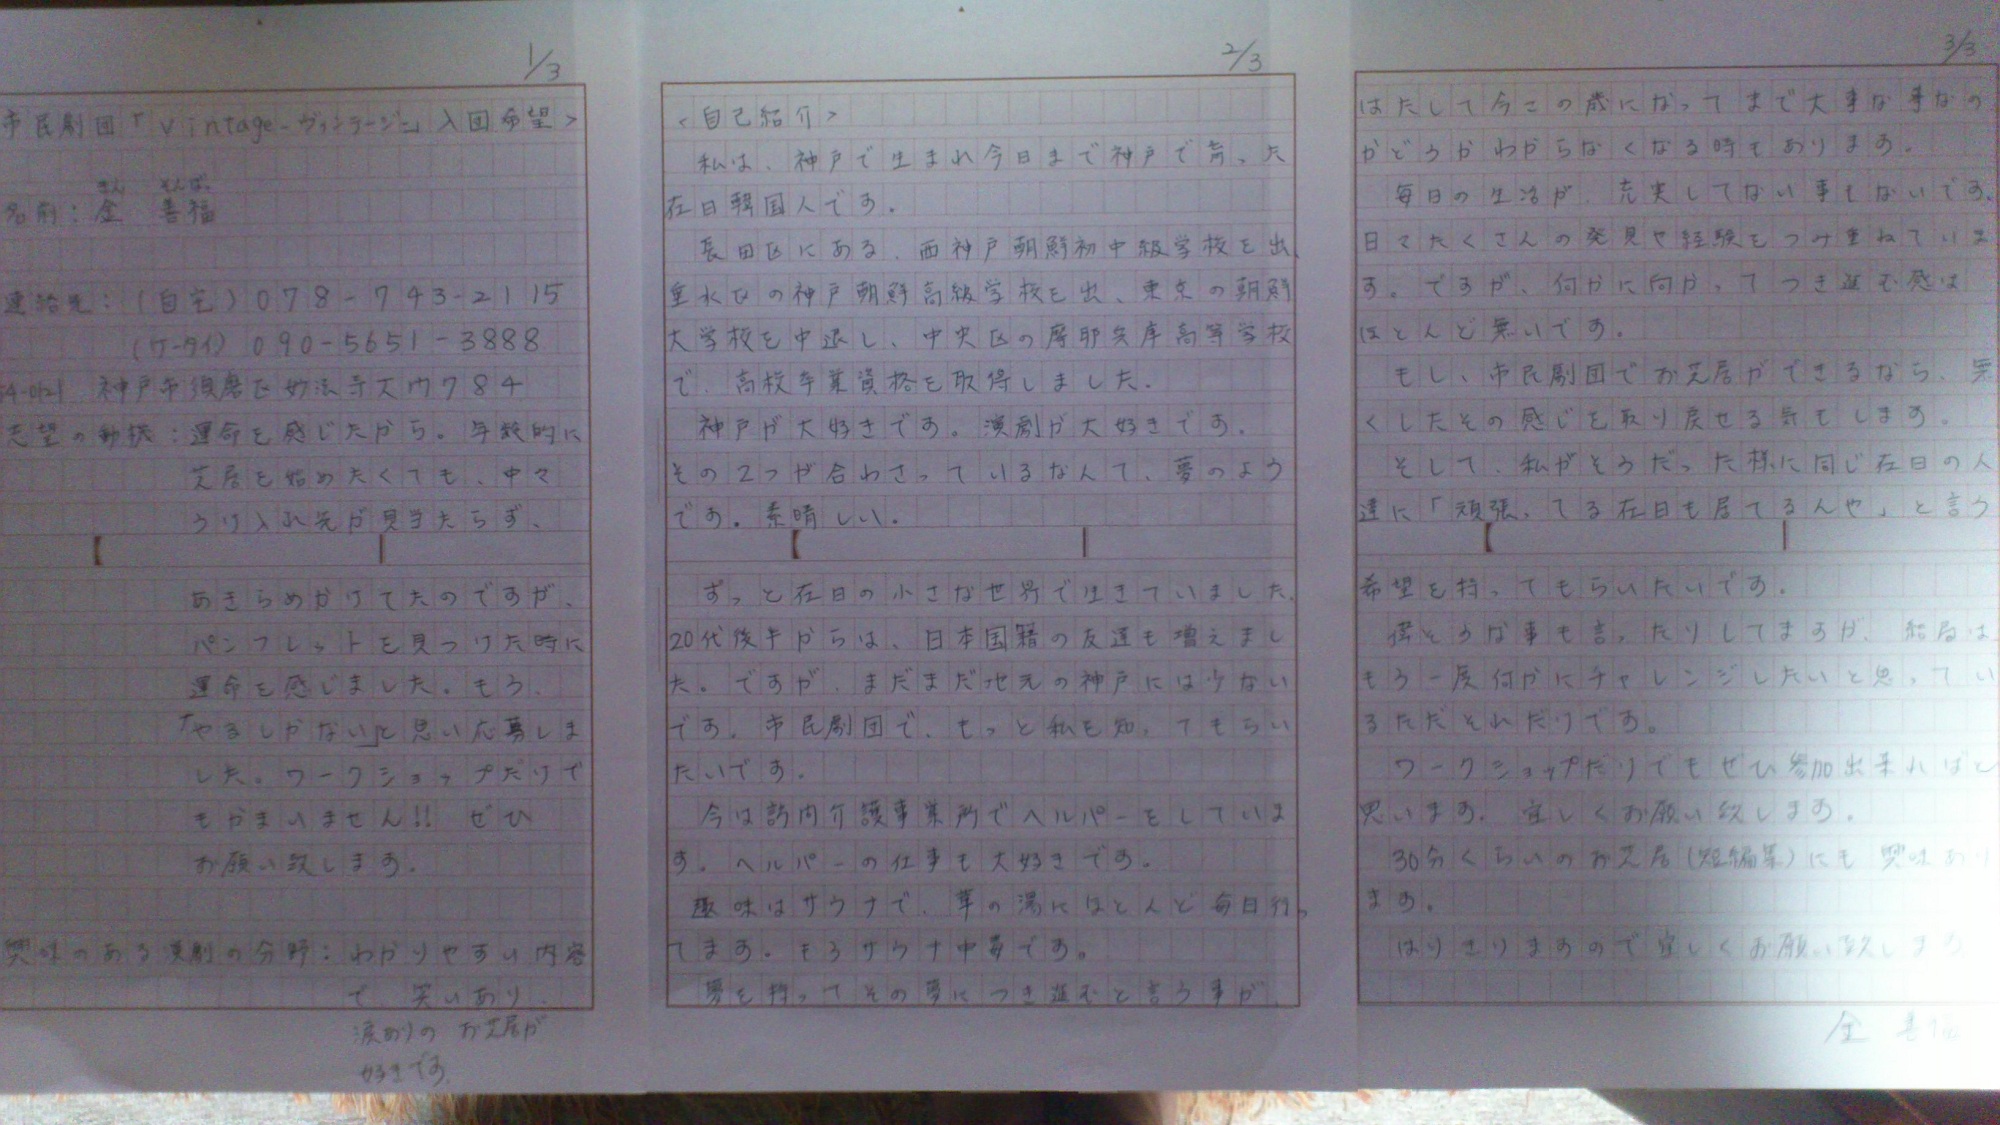 1/3
市民劇団「vintage-ヴィンテージ」入団希望>
きん そんぼ
名前: 金 善福
連絡先:(自宅)078-743-2115
(ケータイ) 090-5651-3888
神戸市須磨区妙法寺大門784
志望の動機:運命を感じたから。年数的に
芝居を始めたくても、中々
うけ入れ先が見当たらず、
あきらめかけてたのですが、
パンフレットを見つけた時に
運命を感じました。もう、
「やるしかない」と思い応募しま
した。ワークショップだけで
もかまいません!! ぜひ
お願い致します。
興味のある演劇の分野:わかりやすい内容
で、笑いあり、
涙ありの お芝居が
好きです。
2/3
<自己紹介>
私は、神戸で生まれ今日まで神戸で育った
在日韓国人です。
長田区にある、西神戸朝鮮初中級学校を出、
垂水区の神戸朝鮮高級学校を出、東京の朝鮮
大学校を中退し、中央区の摩耶兵庫高等学校
で、高校卒業資格を取得しました。
神戸が大好きです。演劇が大好きです。
その2つが合わさっているなんて、夢のよう
です。素晴しい。
ずっと在日の小さな世界で生きていました。
20代後半からは、日本国籍の友達も増えまし
た。ですが、まだまだ地元の神戸には少ない
です。市民劇団で、もっと私を知ってもらい
たいです。
今は訪問介護事業所でヘルパーをしていま
す。ヘルパーの仕事も大好きです。
趣味はサウナで、華の湯にほとんど毎日行っ
てます。もうサウナ中毒です。
夢を持ってその夢につき進むと言う事が、
3/3
はたして今この歳になってまで大事な事なの
かどうかわからなくなる時もあります。
毎日の生活が、充実してない事もないです。
日々たくさんの発見や経験をつみ重ねていま
す。ですが、何かに向かってつき進む感は
ほとんど無いです。
もし、市民劇団でお芝居ができるなら、無
くしたその感じを取り戻せる気もします。
そして、私がそうだった様に同じ在日の人
達に「頑張ってる在日も居てるんや」と言う
希望を持ってもらいたいです。
偉そうな事も言ったりしてますが、結局は
もう一度何かにチャレンジしたいと思ってい
るただそれだけです。
ワークショップだけでもぜひ参加出来ればと
思います。宜しくお願い致します。
30分くらいのお芝居(短編集)にも興味あり
ます。
はりきりますので宜しくお願い致します
金 善福